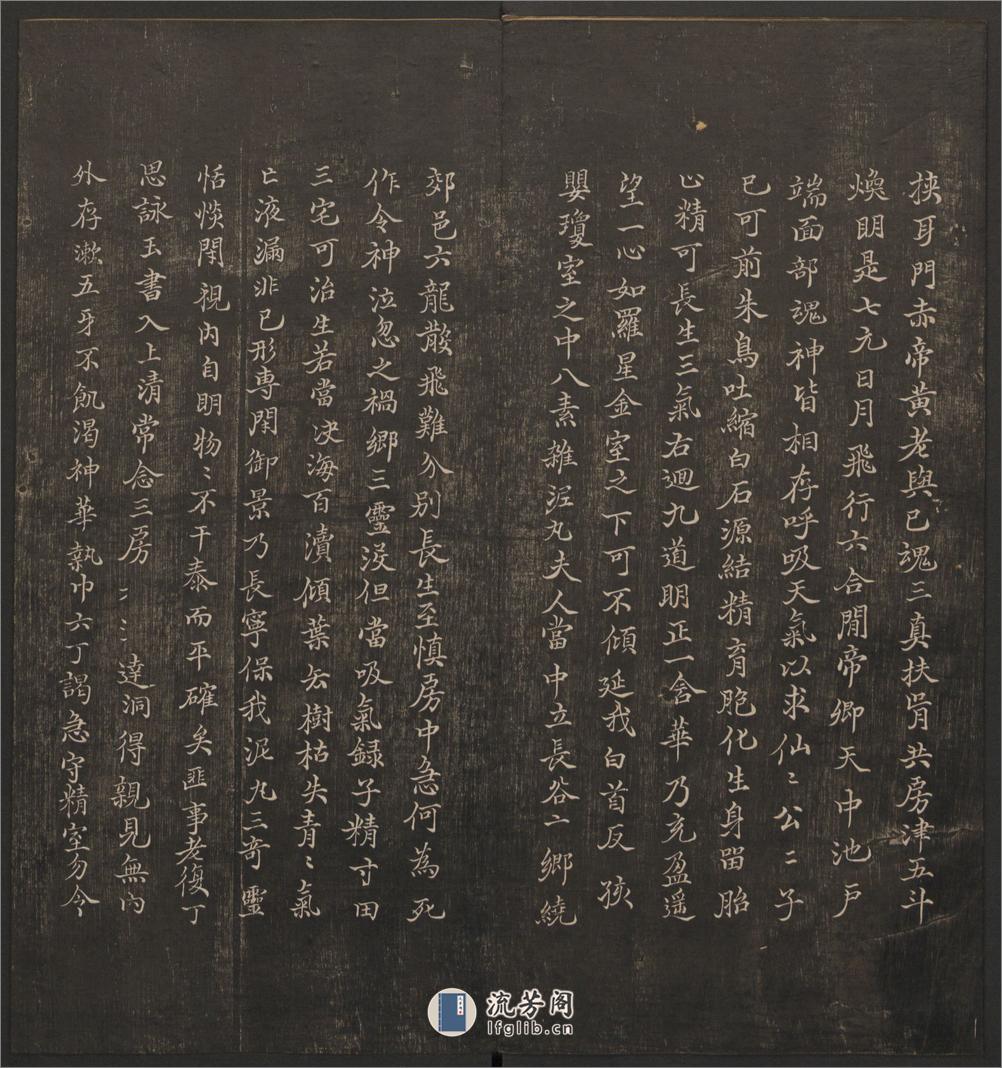 挾耳門赤帝黄老與己魂三真扶胥共房津五斗
煥明是七元日月飛行六合閒帝鄉天中池戶
端面部魂神皆相存呼吸天氣以求仙〻公〻子
已可前朱鳥吐縮白石源結精育胞化生身留胎
止精可長生三氣右迴九道明正一含華乃充盈遥
望一心如羅星金室之下可不傾延我白首反孩
嬰瓊室之中八素雜泥丸夫人當中立長谷鄉繞
郊邑六龍散飛難分別長生至慎房中急何為死
作令神泣忽之禍鄉三靈沒但當吸氣録子精寸田
三宅可治生若當决海百瀆傾葉去樹枯失青〻氣
亡液漏非已形専閑御景乃長寧保我泥丸三奇靈
恬惔閑視內自明物〻不干泰而平確矣匪事老復丁
思詠玉書入上清常念三房〻〻達洞得親見無內
外存漱五牙不飢渴神華執巾六丁謁急守精室勿令
流芳阁
lfglib.cn